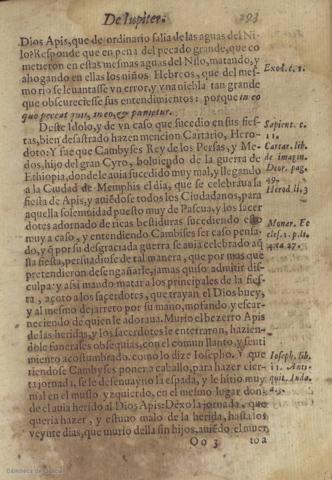 De Iupiter.
293
Dios Apis, que de ordinario salia de las aguas del Ni-
lo? Responde que en pena del pecado grande, que co
metieron en estas mesmas aguas del Nilo, matando, y
ahogando en ellas los niños Hebreos, que del mes-
mo rio se leuantasse vn error, y vna niebla tan grande
que obscureciesse sus entendimientos: porque in eo
quo peccat quis, in eo, & punietur.
Deste Idolo, y de vn caso que sucedio en sus fies-
tas, bien desastrado hazen mencion Cartario, Hero-
doto: Y fue que Cambyses Rey de los Persas, y Me-
dos, hijo del gran Cyro, boluiendo de la guerra de
Ethiopia, donde le auia sucedido muy mal, y llegando
a la Ciudad de Memphis el dia, que se celebraua la
fiesta de Apis, y auiẽdose todos los Ciudadanos, para
aquella solemnidad puesto muy de Pascua, y los sacer
dotes adornado de ricas bestiduras. Sucediendo esto
muy a caso, y entendiendo Cambises ser caso pensa-
do, y q̃ por su desgraciada guerra se auia celebrado aq̃
lla fiesta, persuadiose de tal manera, que por mas que
pretendieron desengañarle, jamas quiso admitir dis-
culpa: y assi mando matar a los principales de la fies-
ta, açoto a los sacerdotes, que trayan el Dios buey,
y al mesmo dejarreto por su mano, mofando, y escar-
neciendo de quien le adoraua. Murio el bezerro Apis
de las heridas, y los sacerdotes le enterraron, hazien-
dole funerales obsequias, con el comun llanto, y senti
miento acostumbrado. como lo dize Iosepho. Y que
riendose Cambyses poner a cauallo, para hazer cier-
ta jornada, se le desenuayno la espada, y le hirio muy
mal en el muslo yzquierdo, en el mesmo lugar don-
de el auia herido al Dios Apis: Dexo la jornada, que
queria hazer, y estuuo malo de la herida, hasta los
veynte dias, que murio della sin hijos, auiẽdo el muer
Oo 3
to a
Exod. c. 1.
Sapient. c.
11.
Cartar. lib.
de imagin.
Deor. pag.
49.
Herod. li. 3
Ioseph. lib.
11. Anti-
quit. Iuda.